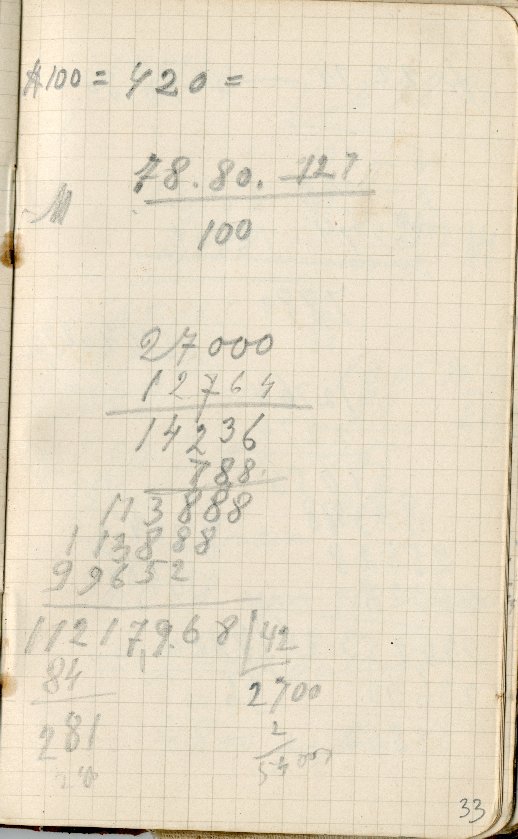 100 = 420 =
78.80. 127
M
100
27000
12764
14236
788
113888
113888
99652
11217968 | 42
84
2700
281
2
54000
33